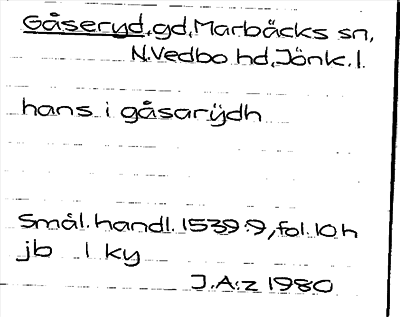 Gåseryd, gd, Marbäcks sn,
N.Vedbo hd, Jönk. l.
hans i gåsarÿdh
Smål. handl. 1539:9, fol. 10 h
jb 1 ky
J.A:z 1980